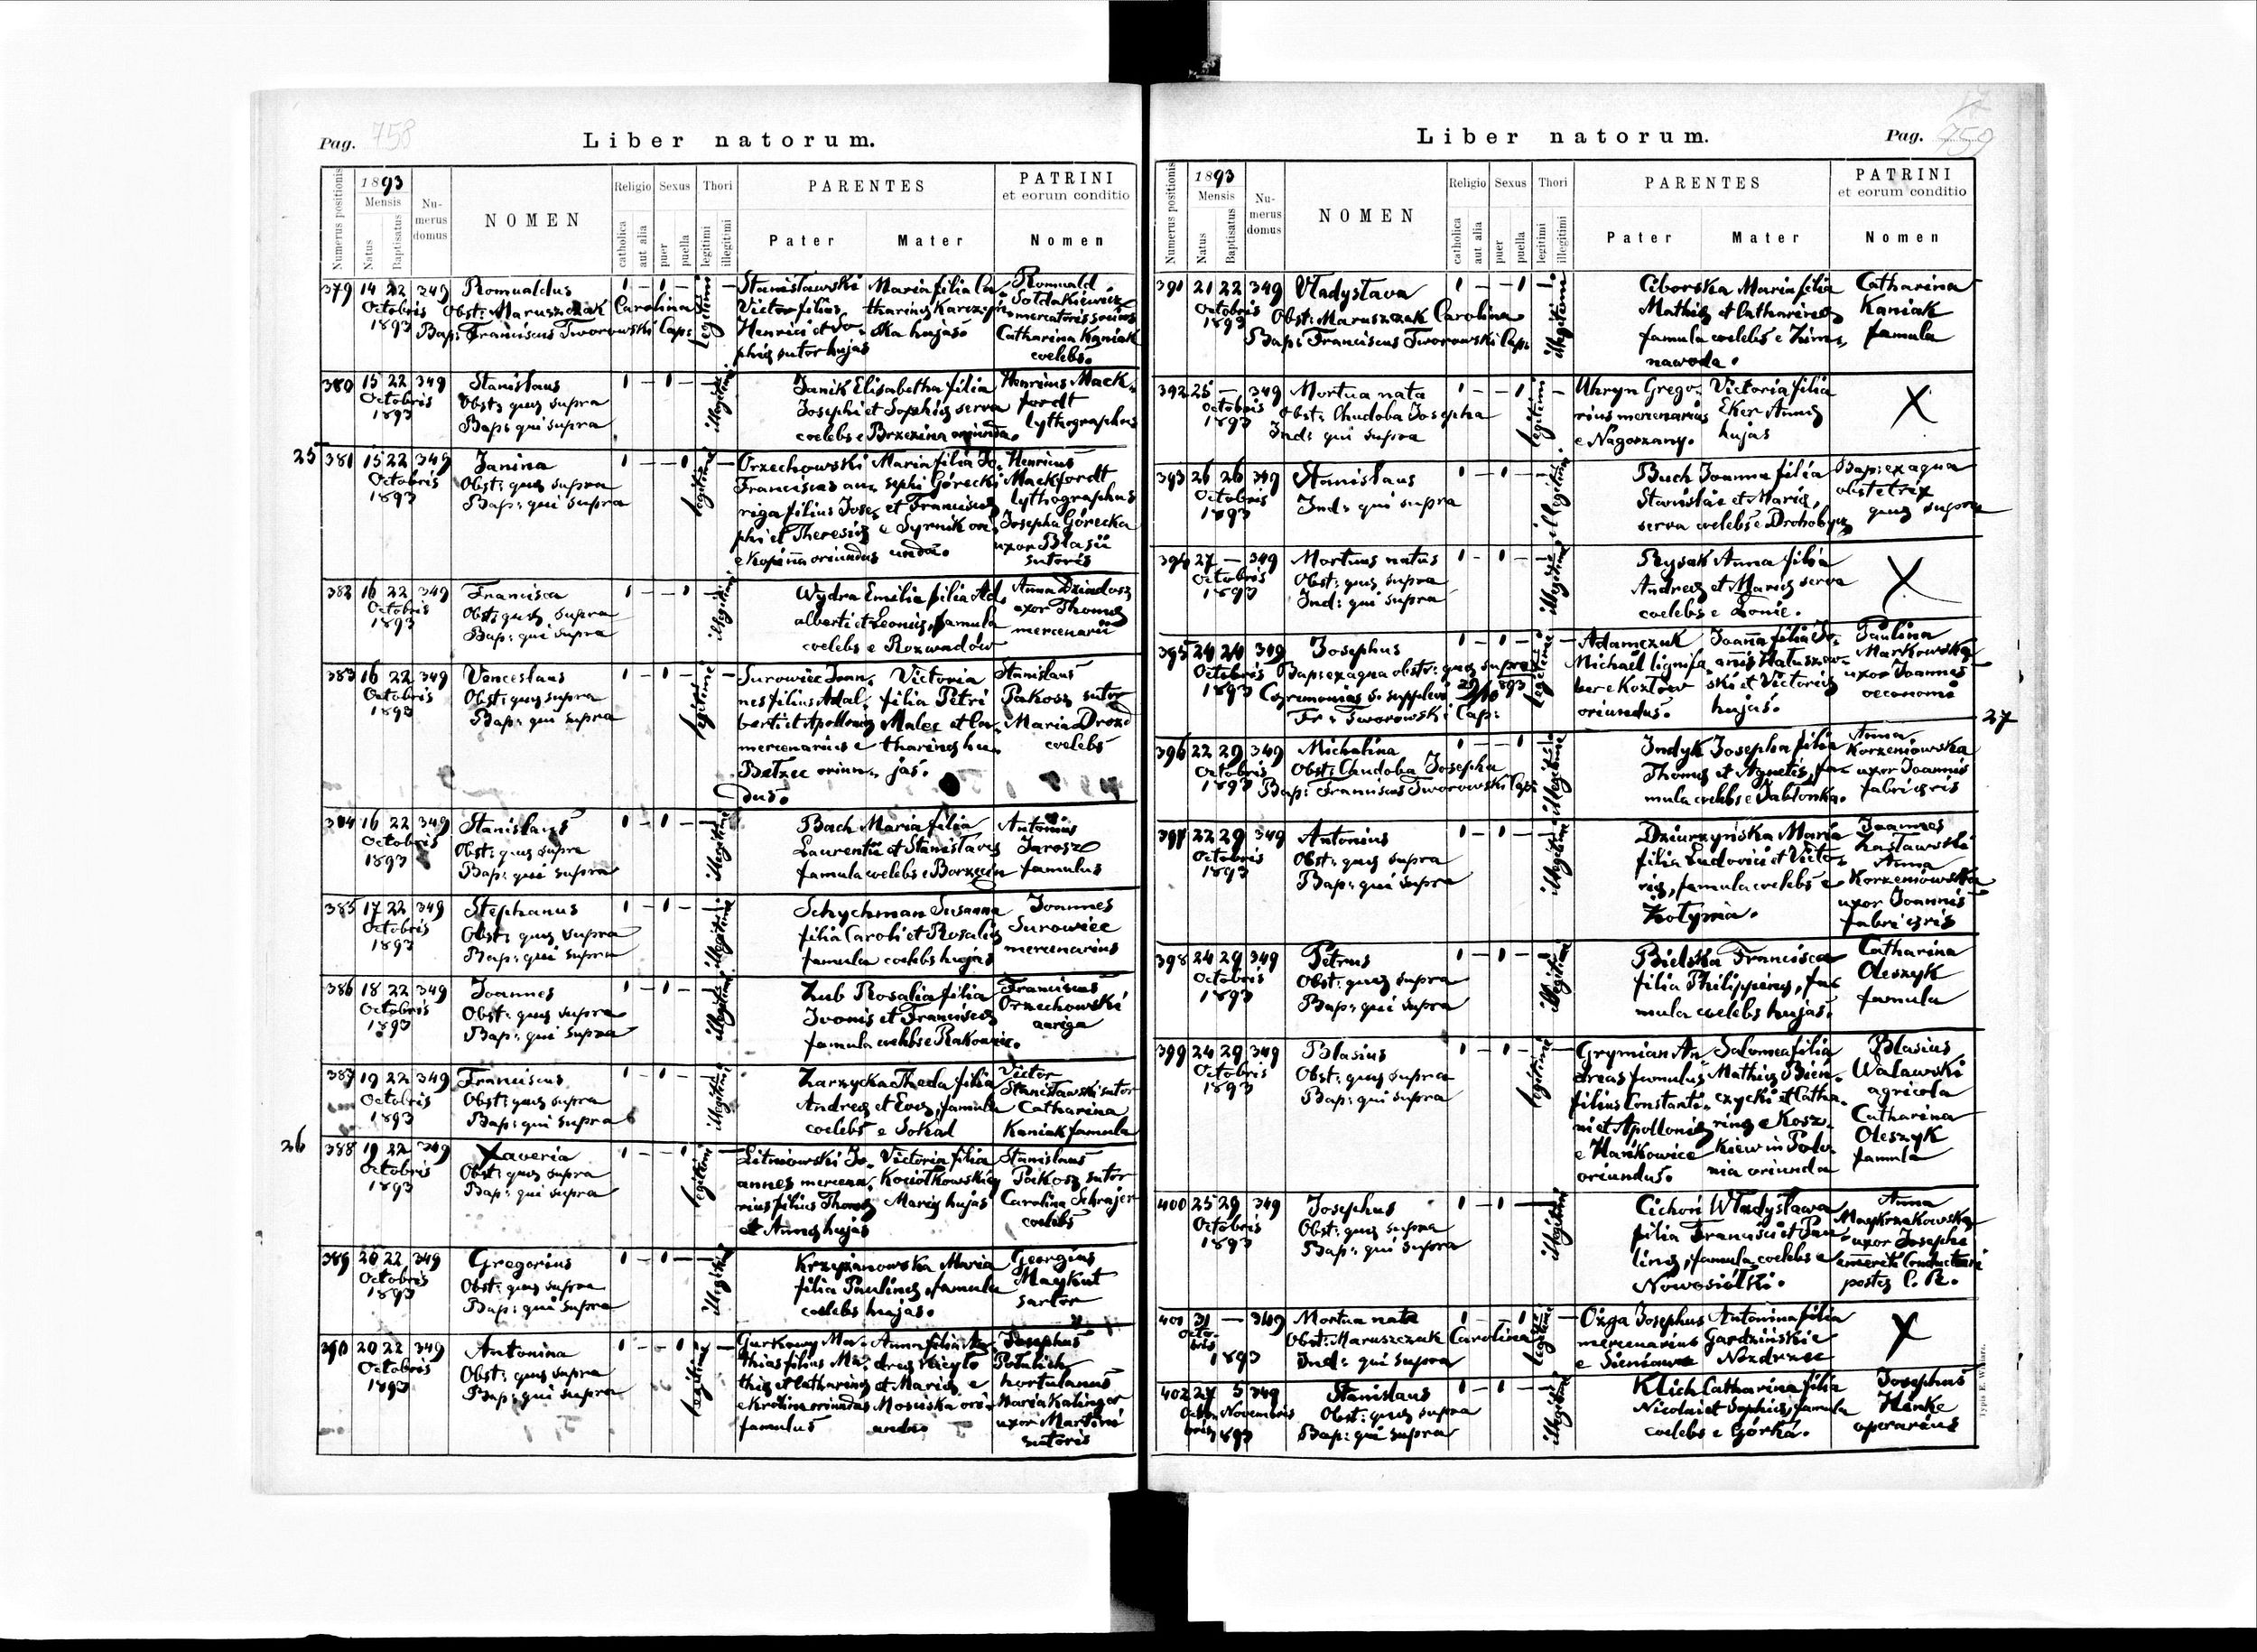 Pag. 758
Liber natorum.
Numerus positionis
1893
Mensis
Natus
Baptisatus
Numerus domus
NOMEN
Religio
catholica
aut alia
Sexus
puer
puella
Thori
legitimi
illegitimi
PARENTES
Pater
Mater
PATRINI
et eorum conditio
Nomen
379 14 22 349 Romualdus 1 – 1 – legitimi –
Octobris 1893
Obst: Maruszczak Carolina
Bap: Franciscus Tworowski Cap:
Stanisławski
Victor filius
Henrici et So-
phiæ sutor hujas
Maria filia Ca-
tharinæ Karczyń-
ska hujas.
Romuald
Sołdakiewicz
mercatoris socius
Catharina Kaniak
coelebs.
380 15 22 349 Stanislaus 1 – 1 – illegitimi
Octobris 1893
Obst: quæ supra
Bap: qui supra
Janik Elisabetha filia
Josephi et Sophiæ serva
coelebs e Brzezina oriunda.
Henricus Mack-
fordt
lythographus
25
381 15 22 349 Janina 1 – – 1 legitimi –
Octobris 1893
Obst: quæ supra
Bap: qui supra
Orzechowski
Franciscus au-
riga filius Jose-
phi et Theresiæ
e Kopina oriundus
Maria filia Jo-
sephi Górecki
et Franciscæ
e Syrnik ori-
unda.
Henricus
Mackfordt
lythographus
Josepha Górecka
uxor Blasii
sutoris
382 16 22 349 Francisca 1 – – 1 illegitimi
Octobris 1893
Obst: quæ supra
Bap: qui supra
Wydra Emilia filia Ad-
alberti et Leoniæ, famula
coelebs e Rozwadów
Anna Dziadosz
uxor Thomæ
mercenarii
383 16 22 349 Venceslaus 1 – 1 – legitimi –
Octobris 1893
Obst: quæ supra
Bap: qui supra
Surowiec Joan-
nes filius Adal-
berti et Apolloniæ
mercenarius e
Bełzec oriun-
dus.
Victoria
filia Petri
Malec et Ca-
tharinæ hu-
jas.
Stanislaus
Pakosz sutor
Maria Drozd
coelebs
384 16 22 349 Stanislaus 1 – 1 – illegitimi
Octobris 1893
Obst: quæ supra
Bap: qui supra
Bach Maria filia
Laurentii et Stanislavæ
famula coelebs e Borzęcin
Antonius
Jarosz
famulus
385 17 22 349 Stephanus 1 – 1 – illegitimi
Octobris 1893
Obst: quæ supra
Bap: qui supra
Schychman Susanna
filia Caroli et Rosaliæ
famula coelebs hujas
Joannes
Surowiec
mercenarius
386 18 22 349 Joannes 1 – 1 – illegitimi
Octobris 1893
Obst: quæ supra
Bap: qui supra
Zub Rosalia filia
Ivonis et Franciscæ
famula coelebs e Rakowic.
Franciscus
Orzechowski
auriga
387 19 22 349 Franciscus 1 – 1 – illegitimi
Octobris 1893
Obst: quæ supra
Bap: qui supra
Zarzycka Theda filia
Andreæ et Evæ, famula
coelebs e Sokal
Victor
Stanisławski sutor
Catharina
Kaniak famula
26
388 19 22 349 Xaveria 1 – – 1 legitimi –
Octobris 1893
Obst: quæ supra
Bap: qui supra
Litniowski Jo-
annes mercena-
rius filius Thomæ
et Annæ hujas
Victoria filia
Kociołkowskiej
Mariæ hujas
Stanislaus
Pakosz sutor
Carolina Schrajer
coelebs
389 20 22 349 Gregorius 1 – 1 – illegitimi
Octobris 1893
Obst: quæ supra
Bap: qui supra
Krzyżanowska Maria
filia Paulinæ, famula
coelebs hujas.
Georgius
Maykut
sartor
390 20 22 349 Antonina 1 – – 1 legitimi –
Octobris 1893
Obst: quæ supra
Bap: qui supra
Gurkowy Ma-
thias filius Ma-
thiæ et Catharinæ
e Krolin oriundus
famulus
Anna filia An-
dreæ
et Mariæ e
Mosciska ori-
unda
Josephus
Potulich
hortulanus
Maria Kalinger
uxor Martini
sutoris
Liber natorum.
Pag. 759
Numerus positionis
1893
Mensis
Natus
Baptisatus
Numerus domus
NOMEN
Religio
catholica
aut alia
Sexus
puer
puella
Thori
legitimi
illegitimi
PARENTES
Pater
Mater
PATRINI
et eorum conditio
Nomen
391 21 22 349 Vladyslava 1 – – 1 illegitimi
Octobris 1893
Obst: Maruszczak Carolina
Bap: Franciscus Tworowski Cap:
Ciborska Maria filia
Mathiæ et Catharinæ
famula coelebs e Zimna-
nawoda.
Catharina
Kaniak
famula
392 25 – 349 Mortua nata 1 – – 1 legitimi –
Octobris 1893
Obst: Chudoba Josepha
Ind: qui supra
Uhryn Grego-
rius mercenarius
e Nagorzany.
Victoria filia
Eker Annæ
hujas
X
393 26 26 349 Stanislaus 1 – 1 – illegitimi
Octobris 1893
Ind: qui supra
Buch Joanna filia
Stanislai et Mariæ,
serva coelebs e Drohobycz
Bap: ex aqua
obstetrix
quæ supra
394 27 – 349 Mortuus natus 1 – 1 – illegitimi
Octobris 1893
Obst: quæ supra
Ind: qui supra
Rysak Anna filia
Andreæ et Mariæ serva
coelebs e Łonie.
X
395 24 24 349 Josephus 1 – 1 – legitimi –
Octobris 1893
Bap: ex aqua obstr: quæ supra
Cæremonias S. supplevit 29/10 893
Fr: Tworowski Cap:
Adamczuk
Michaël lignifa-
ber e Kozłow
oriundus.
Joanna filia Jo-
annis Matuszew-
ski et Victoriæ
hujas.
Paulina
Markowska
uxor Joannis
oeconomi
27
396 22 29 349 Michalina 1 – – 1 illegitimi
Octobris 1893
Obst: Chudoba Josepha
Bap: Franciscus Tworowski Cap:
Indyk Josepha filia
Thomæ et Agnetis, fa-
mula coelebs e Jabłonka.
Anna
Korzeniowska
uxor Joannis
fabri æris
397 22 29 349 Antonius 1 – 1 – illegitimi
Octobris 1893
Obst: quæ supra
Bap: qui supra
Dziurzyńska Maria
filia Ludovici et Victo-
riæ, famula coelebs e
Zołynia.
Joannes
Zasławski
Anna
Korzeniowska
uxor Joannis
fabri æris
398 24 29 349 Petrus 1 – 1 – illegitimi
Octobris 1893
Obst: quæ supra
Bap: qui supra
Bielska Francisca
filia Philippinæ, fa-
mula coelebs hujas.
Catharina
Oleszyk
famula
399 24 29 349 Blasius 1 – 1 – legitimi –
Octobris 1893
Obst: quæ supra
Bap: qui supra
Grymian An-
dreas famulus
filius Constanti-
ni et Apolloniæ
e Hańkowice
oriundus.
Salomea filia
Mathiæ Bien-
czycki et Catha-
rinæ e Kosz-
kiew in Polo-
nia oriunda
Blasius
Walawski
agricola
Catharina
Oleszyk
famula
400 25 29 349 Josephus 1 – 1 – illegitimi
Octobris 1893
Obst: quæ supra
Bap: qui supra
Cichoń Władysława
filia Francisci et Pau-
linæ, famula coelebs e
Nowosiółki.
Anna
Maykrzakowska
uxor Josephi
emeriti Conductori
postæ C. R.
401 31 – 349 Mortua nata 1 – – 1 legitimi –
Octobris 1893
Obst: Maruszczak Carolina
Ind: qui supra
Ożga Josephus
mercenarius
e Sieniawa
Antonina filia
Gardzińskie
Nozdrzec
X
402 27 5 349 Stanislaus 1 – 1 – illegitimi
Octobris Novembris 1893
Obst: quæ supra
Bap: qui supra
Klich Catharina filia
Nicolai et Sophiæ, famula
coelebs e Górka.
Josephus
Henke
operarius